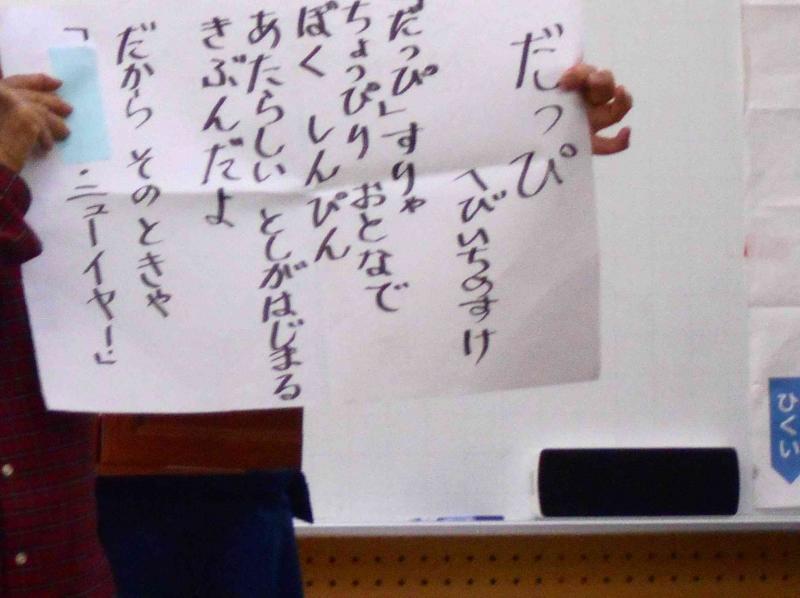 だっぴ
へびいちのすけ
「だっぴ」すりゃ
ちょっぴり おとなで
ぼく しんぴん
あたらしい としがはじまる
きぶんだよ
だから そのときゃ
「
・ニューイヤー!」